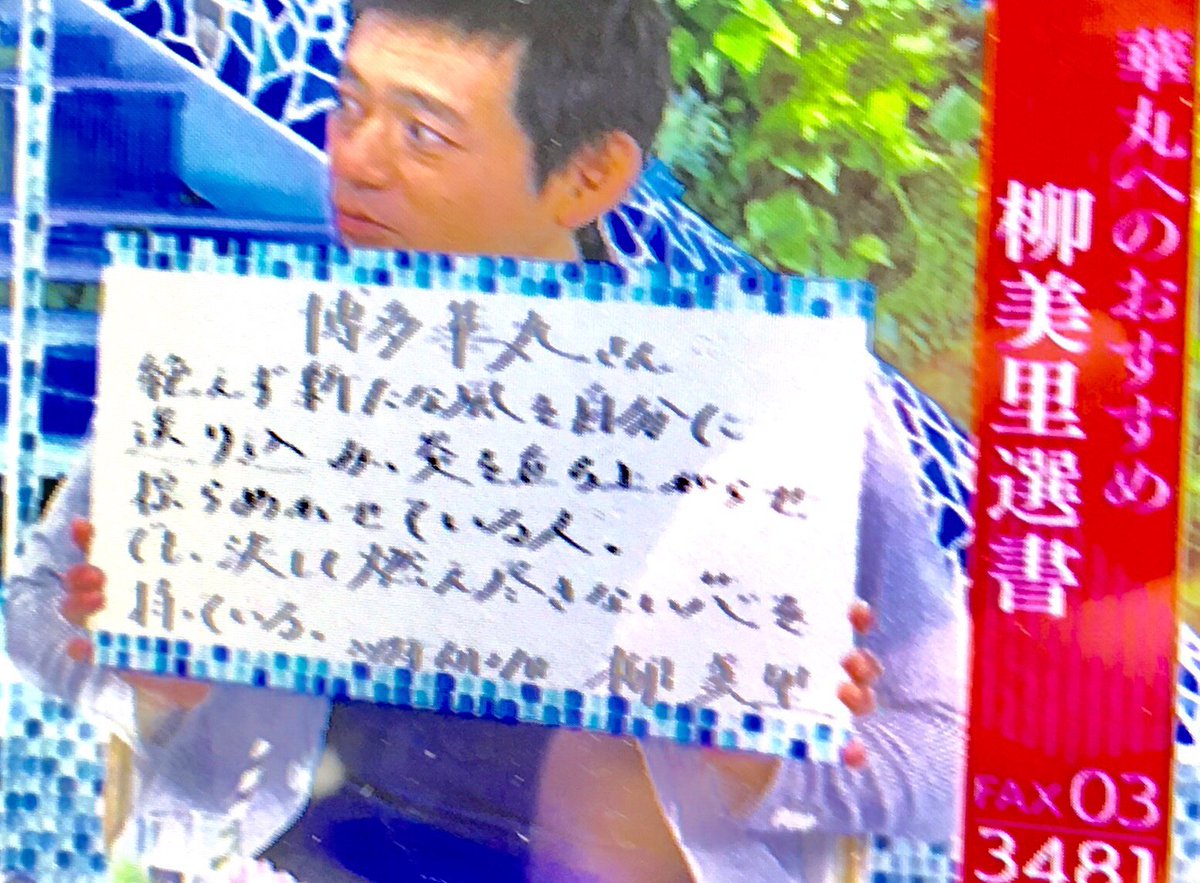 華丸へのおすすめ
柳美里選書
博多華丸さん
絶えず新たな風を自分に
送り込み、炎を立ち上がらせ
揺らめかせている人。
決して燃え尽きない芯を
持っている。
柳美里
FAX03
3481